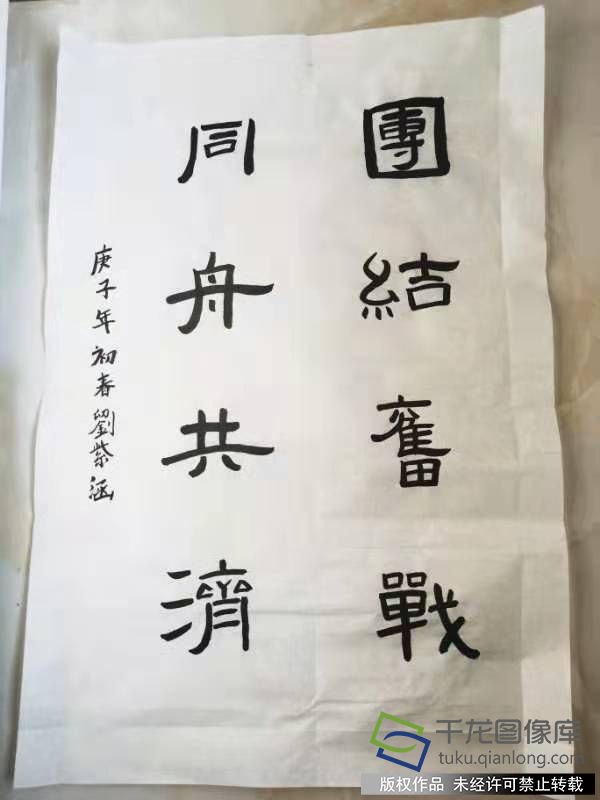 團結奮戰
同舟共濟
庚子年初春劉紫涵
千龙图像库
tuku.qianlong.com
版权作品 未经许可禁止转载